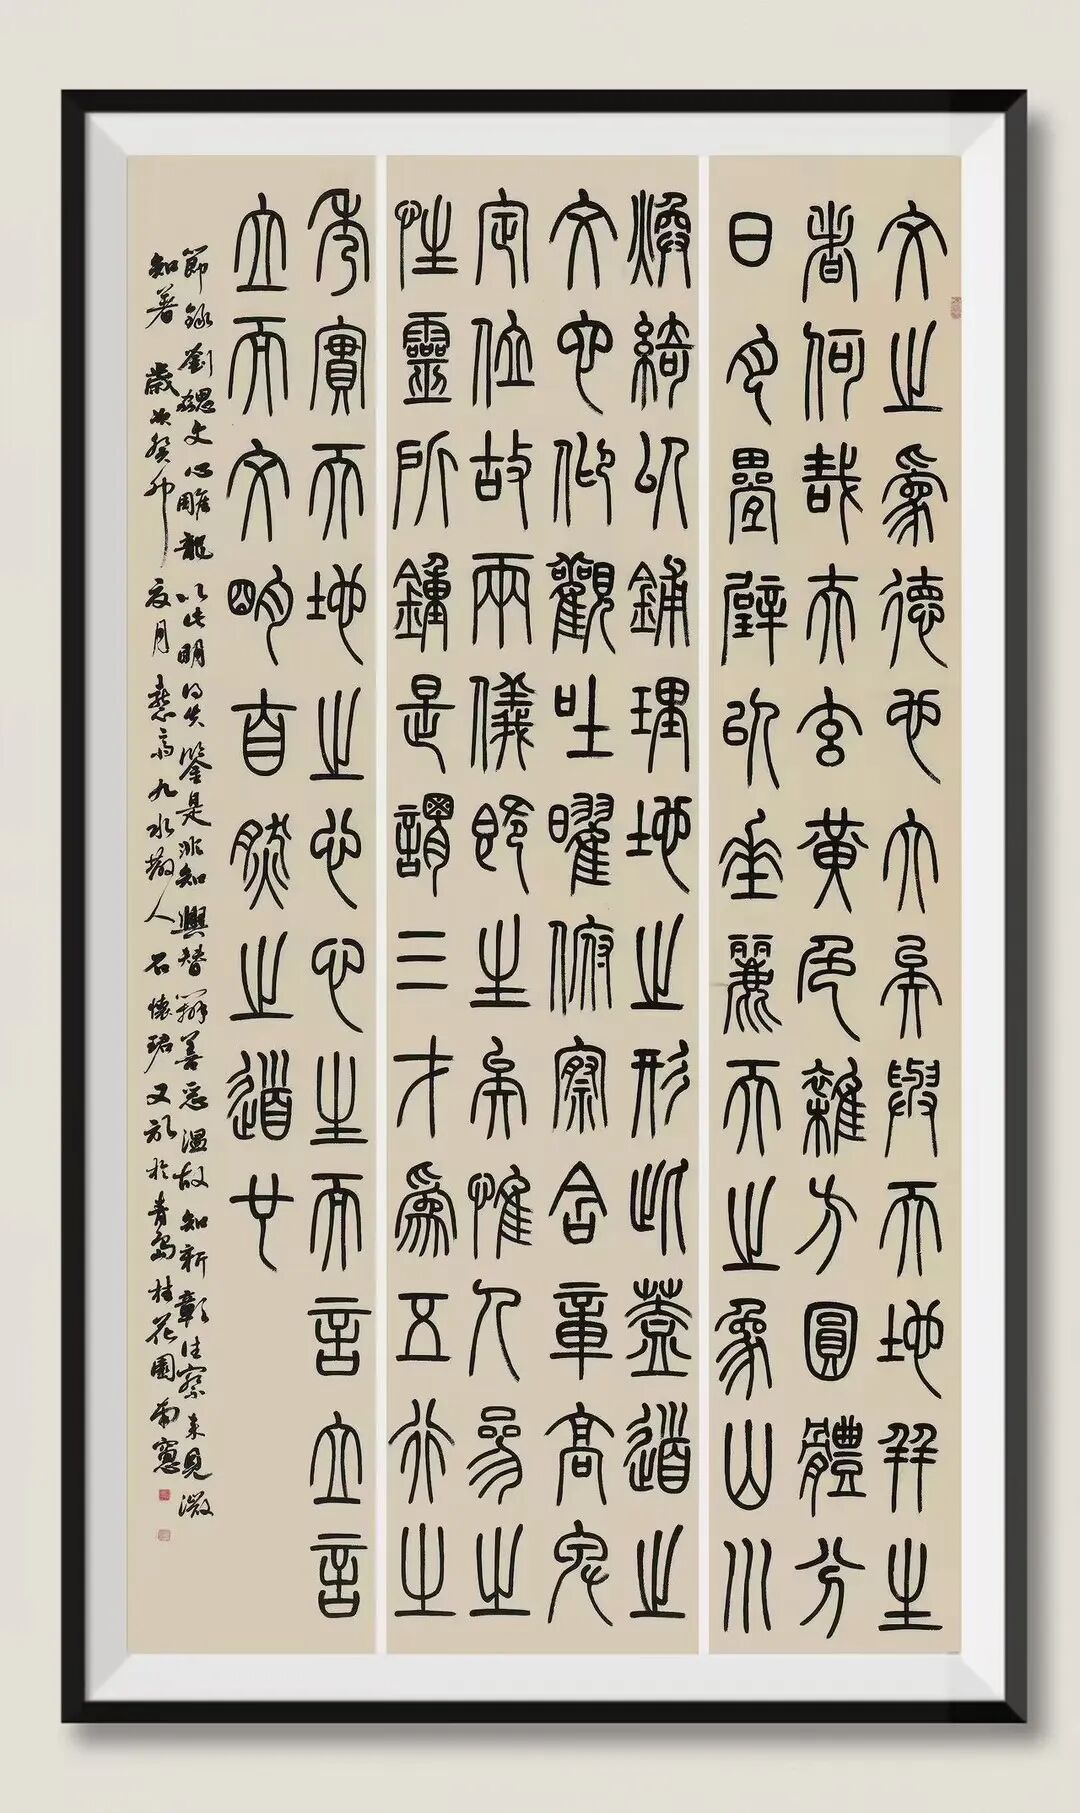 文之爲德也大矣與天地并生
者何哉夫玄黃色雜方圓體分
日月疊璧以垂麗天之象山川
煥綺以鋪理地之形此蓋道之
文也仰觀吐曜俯察含章高卑
定位故兩儀既生矣惟人參之
性靈所鍾是謂三才爲五行之
秀實天地之心心生而言立言
立而文明自然之道也
節錄劉勰文心雕龍以此明得失鑒是非知興替辨善惡溫故知新彰往察來見微
知著 歲次癸卯夏月 九水散人石懷於青島桂花園南窗